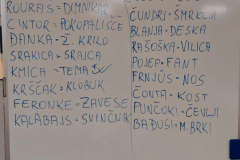 ROURAS = DIMNIKAR
CINTOR = POKOPALIŠČE
DANKA = Ž. KRILO
SRAKICA = SRAJCA
KMICA = TEMA
KRŠČAK = KLOBUK
FERONKE = ZAVESE
KALABAJS = SVINČNIK
ČUNDRI = SMRKLJI
BLANJA = DESKA
RAŠOŠKA = VILICA
POJEP = FANT
FRNJÜS = NOS
ČONTA = KOST
PUNČOKI = ČEVLJI
BAJUSI = M. BRKI